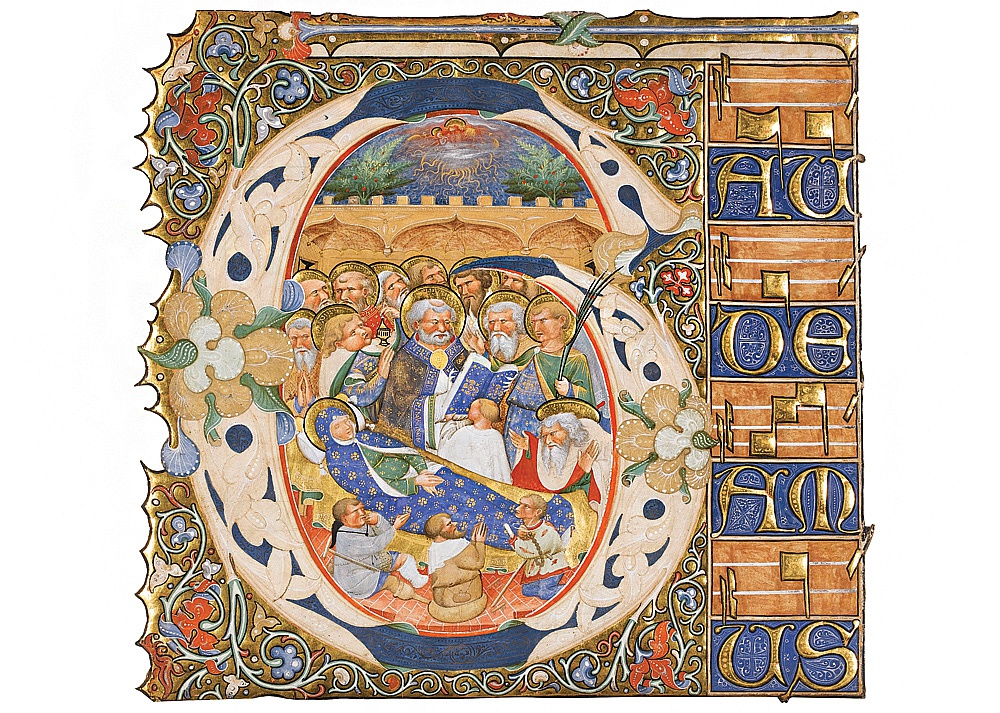 G
AU
DE
AM
US